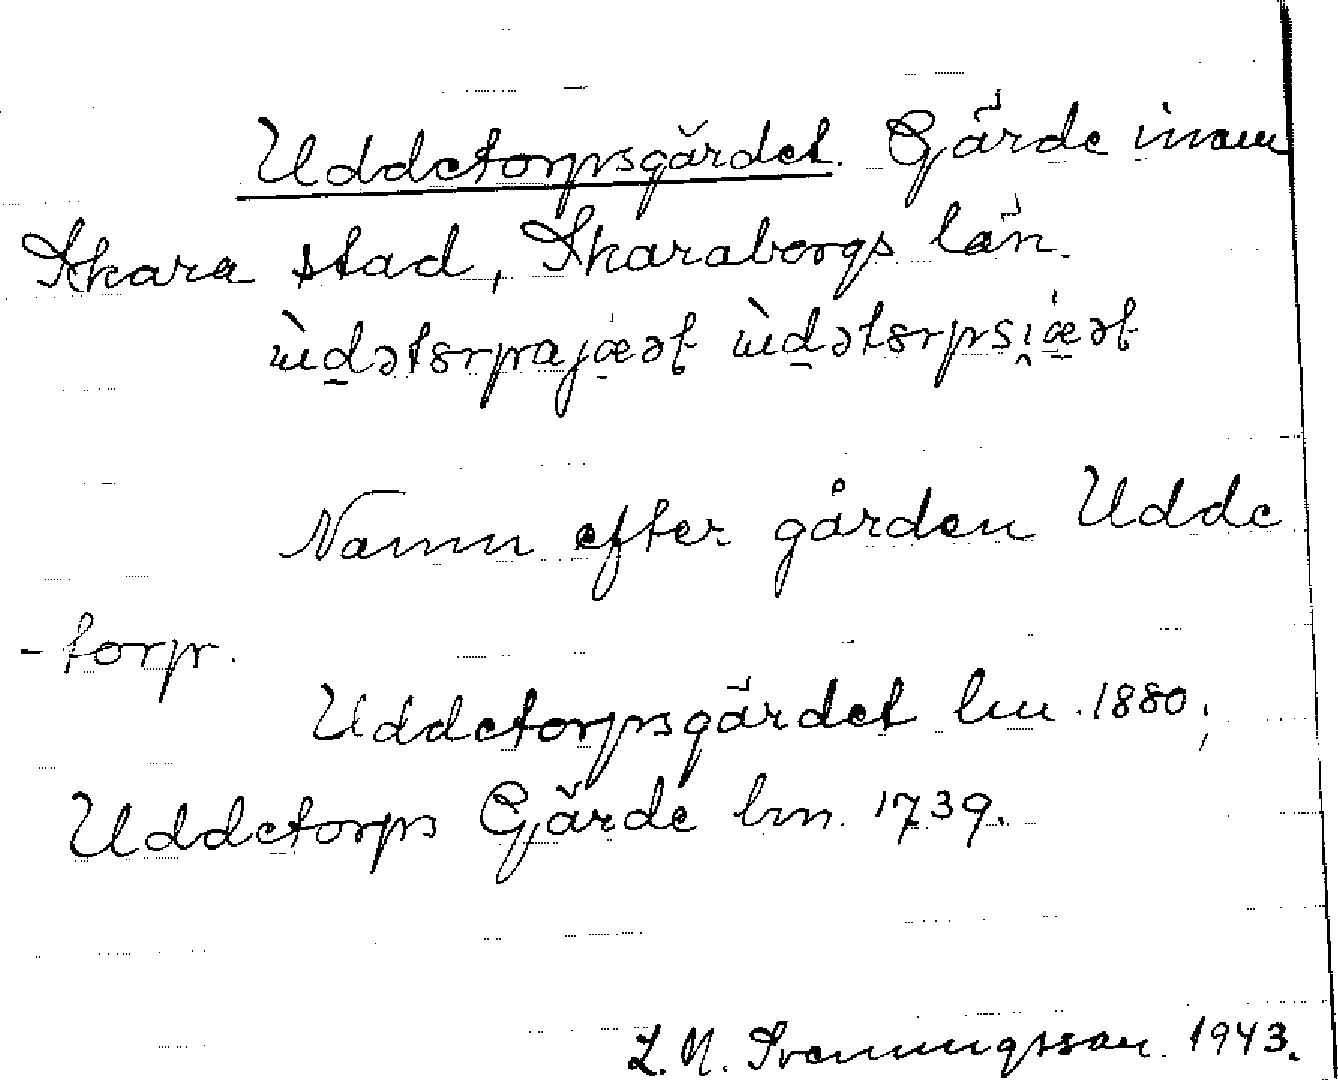 Uddetorpsgärdet. Gärde inom
Skara stad, Skaraborgs län.
Namn efter gården Udde
-torp.
Uddetorpsgärdet lm. 1880;
Uddetorps Gärde lm. 1739.
Z. N. Svenningsson. 1943.